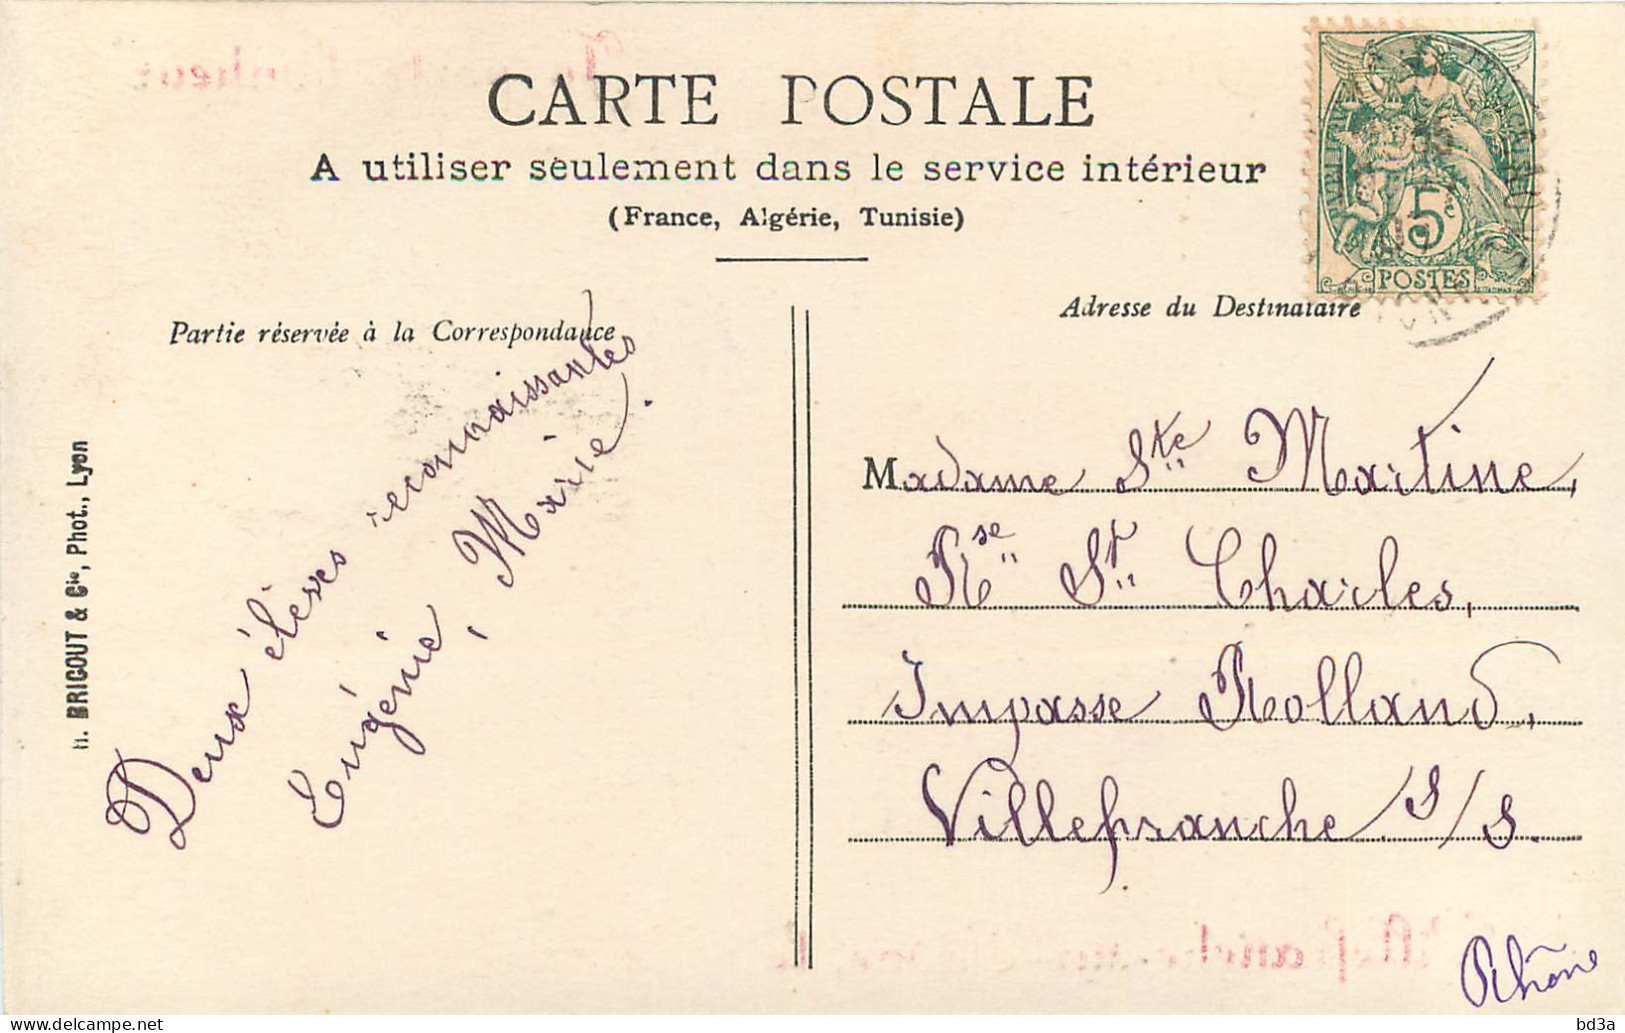 CARTE POSTALE
A utiliser seulement dans le service intérieur
(France, Algérie, Tunisie)
5c
POSTES
Partie réservée à la Correspondance
Adresse du Destinataire
H. BRIGOUT & Cie, Phot., Lyon
Deux élèves reconnaissantes
Eugénie, Marie.
Madame Ste Martine,
Rse St Charles,
Impasse Rolland,
Villefranche s/s.
Rhône
bd3a